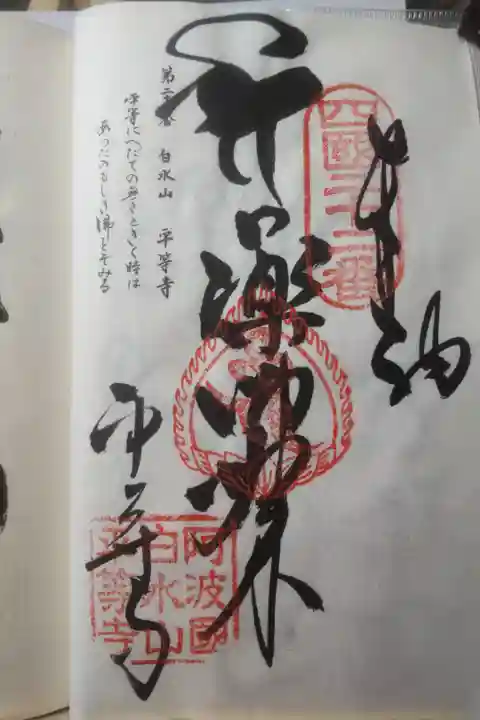 四國二十二番
奉納
薬師如来
平等寺
阿波國
白水山
平等寺
第二十二番 白水山 平等寺
平等にへだての無きときく時は
あらたのもしき佛とぞみる